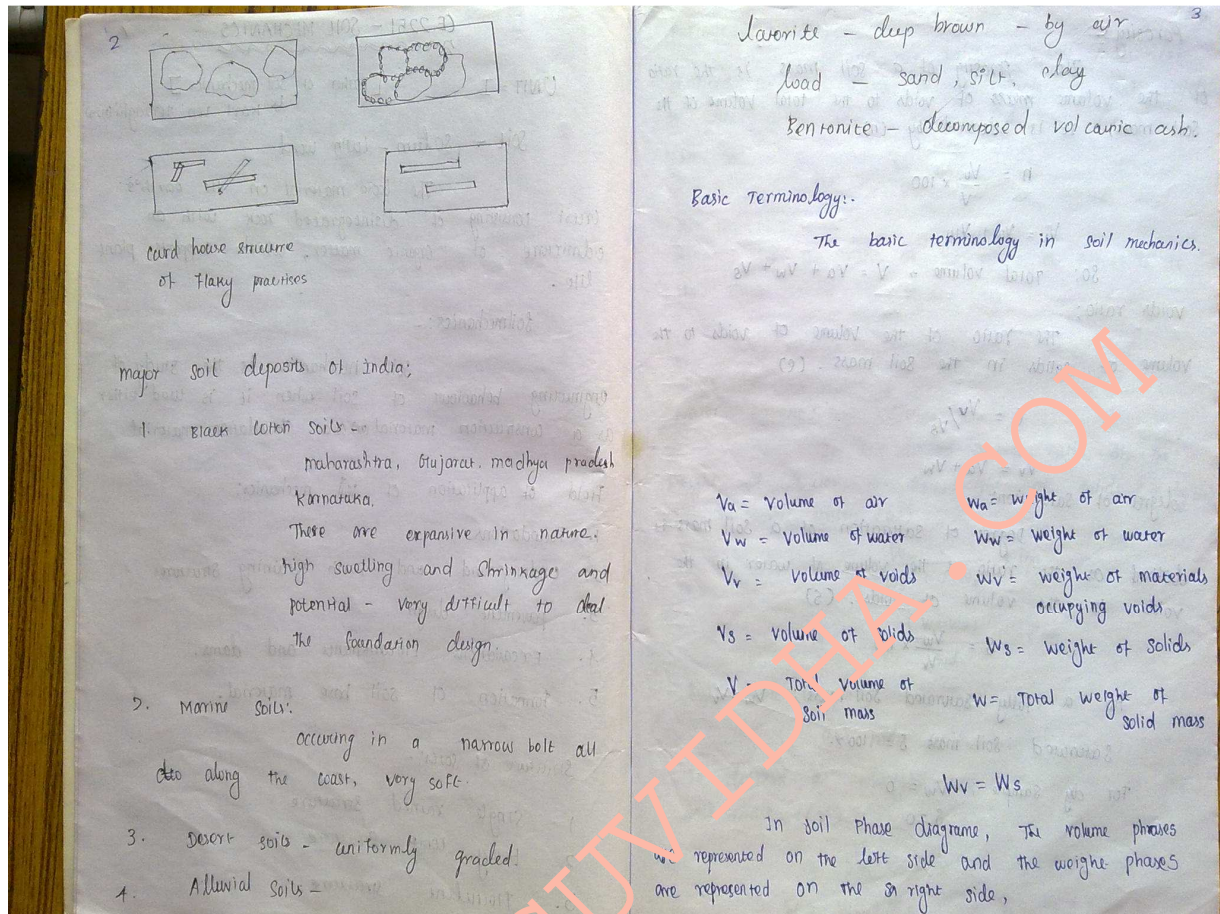 2
card house structure
of Flaky practises
major soil deposits of India;
1. Black cotton soils –
maharashtra, Gujarat. madhya pradesh
Karnataka.
These are expansive in nature.
high swelling and shrinkage and
potential - very difficult to deal
the foundation design.
2. Marine soils:.
occuring in a narrow bolt all
along the coast, very soft.
3. Desert soils - uniformly graded.
4. Alluvial soils –
3
- deep brown - by air
load - sand, silt, clay
Bentonite - decomposed volcanic ash.
Basic Terminology:.
The basic terminology in soil mechanics.
Va = volume of air
Wa = weight of air
Vw = volume of water
Ww = weight of water
Vv = volume of voids
Wv = weight of materials
occupying voids
Vs = volume of solids
Ws = weight of solids
V = Total volume of
soil mass
W = Total weight of
solid mass
Wv = Ws
In soil Phase diagrame, The volume phrases
are represented on the left side and the weight phases
are represented on the right side,
UVIDHA.COM